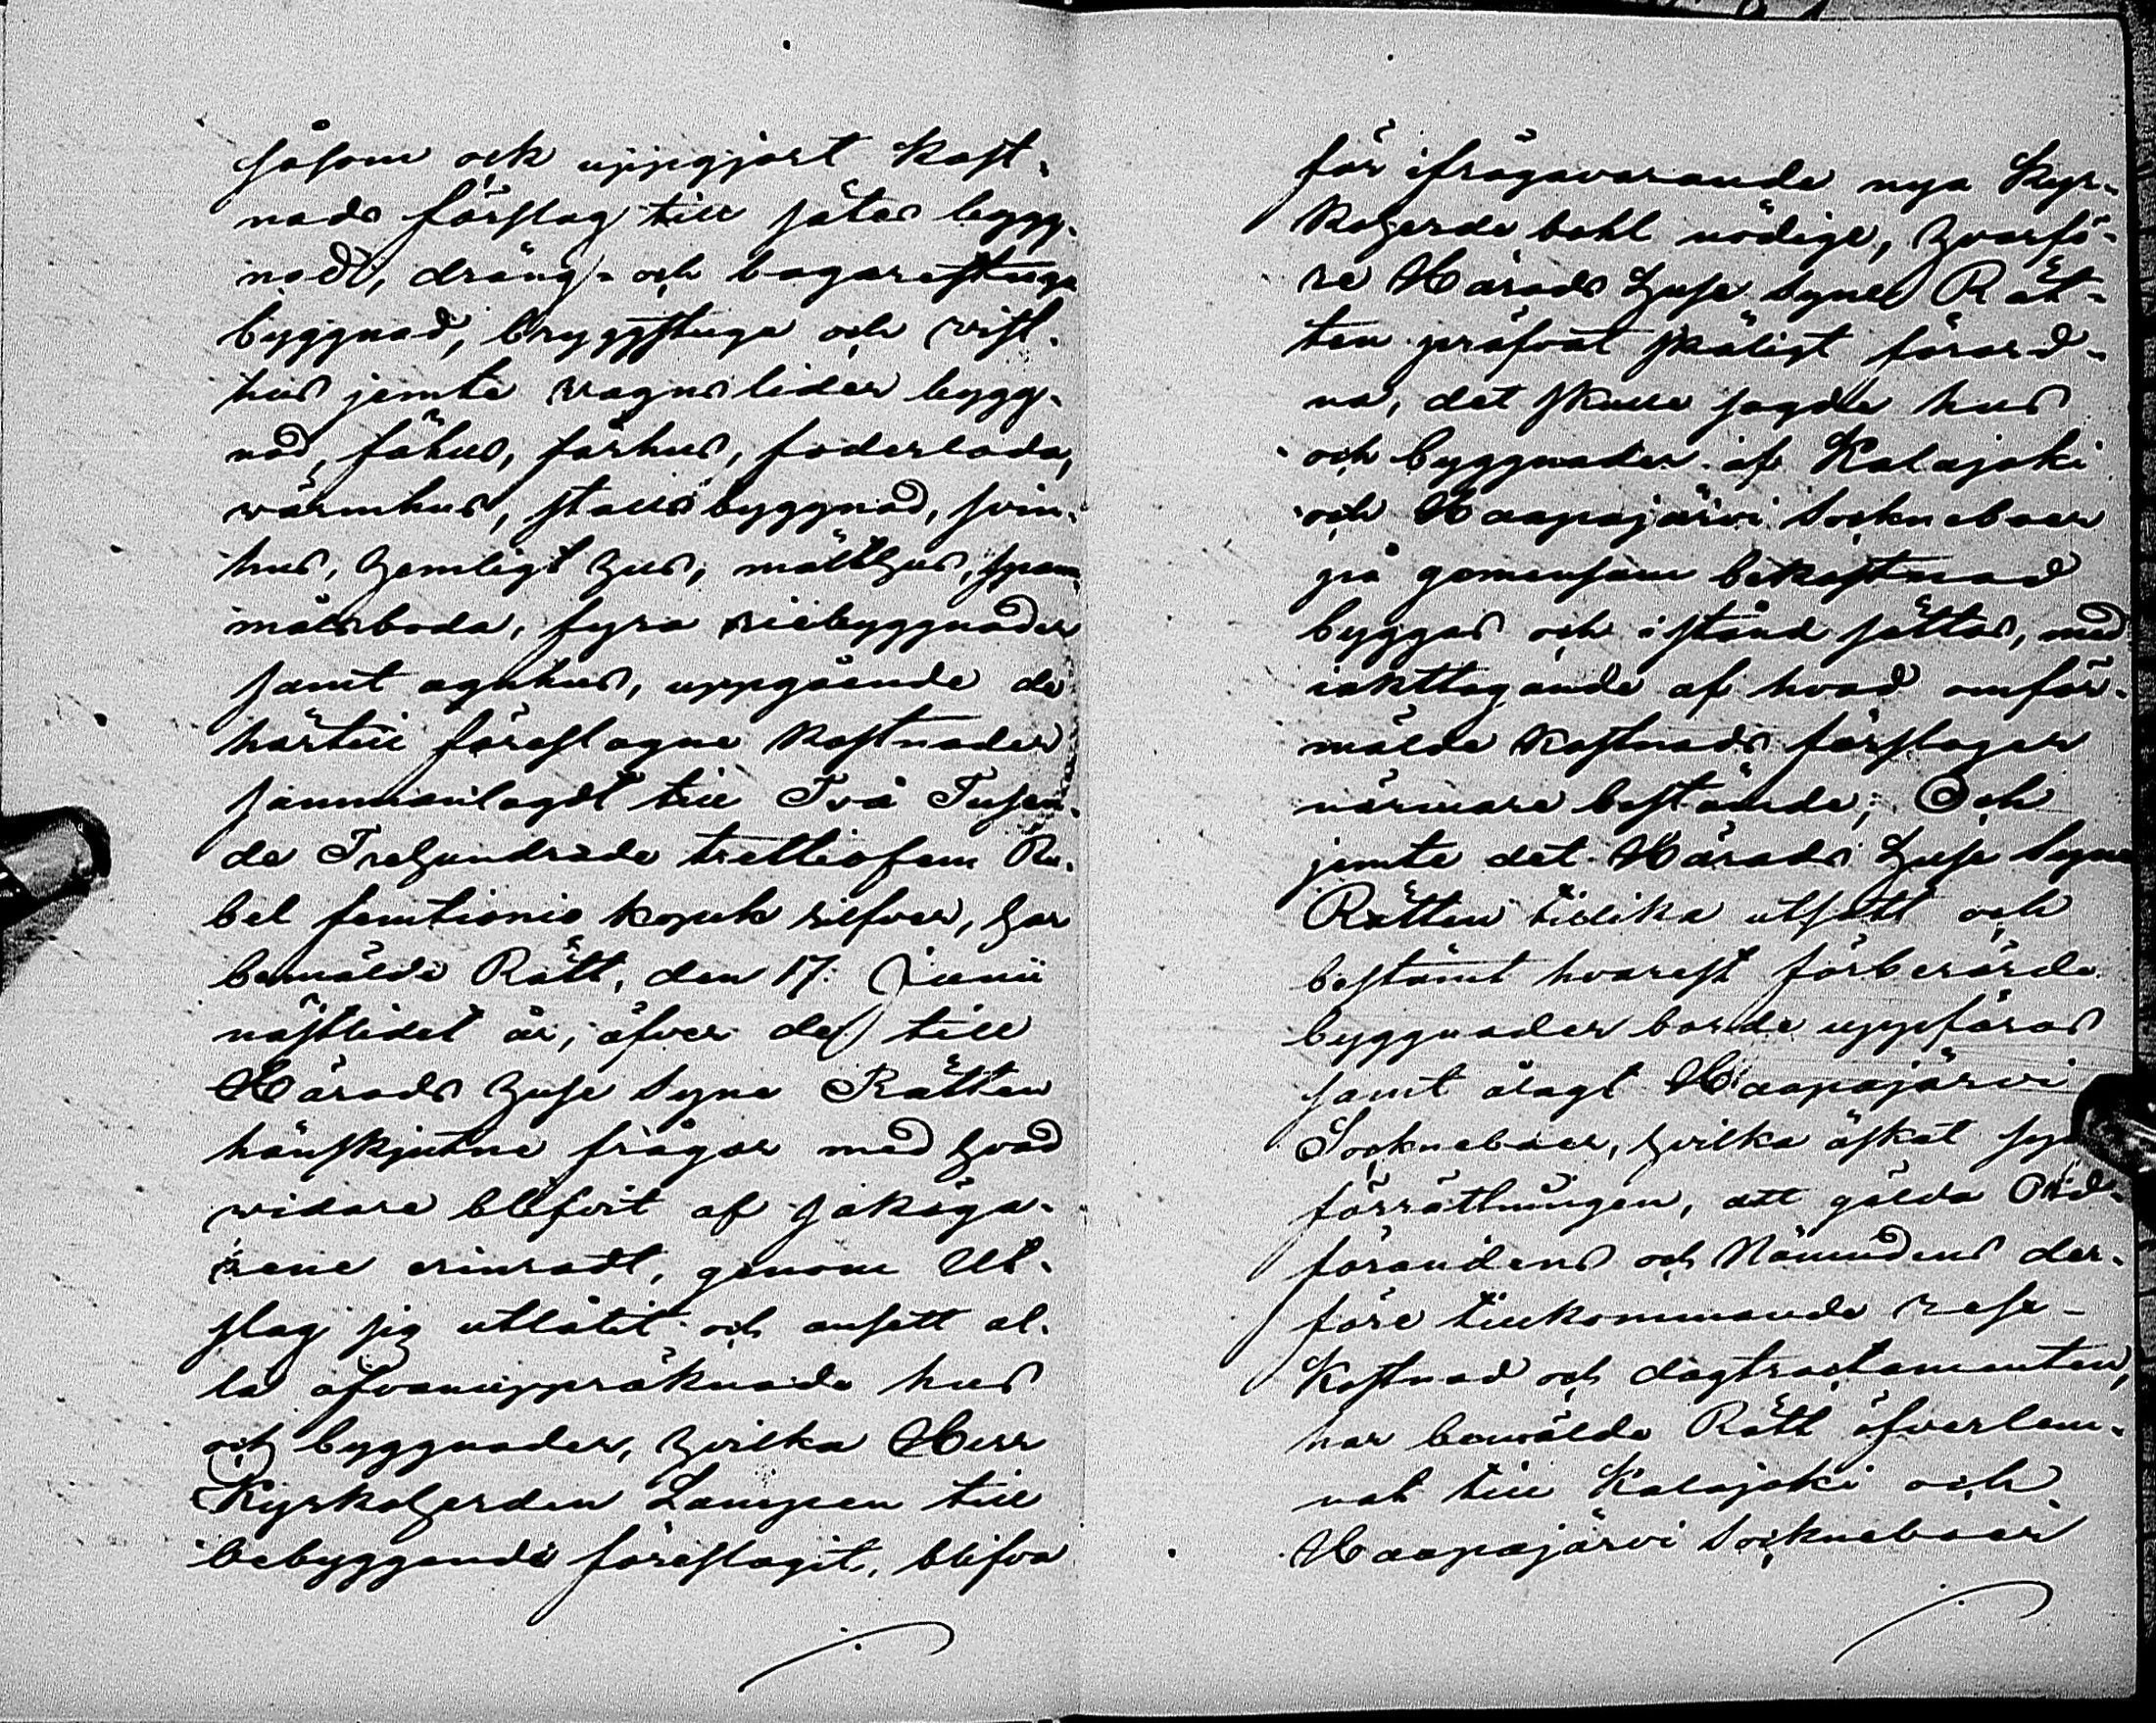 såsom ock uppgjort kost-
nads förslag till sätes bygg-
nad, dräng- och bagarestuge
byggnad, bryggstuga och vist-
hus jemte vagnslider bygg-
nad, fähus, fårhus, foderlada,
värmhus, stallsbyggnad, svin-
hus, hemligt hus, mälthus, span-
målsboda, fyra riebyggnader
samt agnhus, uppgående de
härtill föreslagne kostnader
sammanlagdt till Två Tusen-
de Trehundrade trettiofem Ru-
bel femtionio kopek silfver, har
bemälde Rätt, den 17. Junii
nästlidet år, öfver de till
Härads Husesyne Rätten
hänskjutne frågor med hvad
widare blifvit af sakäga-
rene erinradt, genom Ut-
slag sig utlåtit och ansett al-
la ofvanuppräknade hus
och byggnader, hvilka Herr
Kyrkoherden Lampen till
bebyggande föreslagit, blifva
för ifrågavarande nya Kyr-
koherde bohl nödige, hvarfö-
re Härads Huse syne Rät-
ten pröfvat skäligt förord-
na, det skulle sagde hus
och byggnader af Kalajoki
och Haapajärvi Sockneboer
på gemensam bekostnad
byggas och i stånd sättas, med
iakttagande af hvad omför-
mälde kostnads förslager
närmare bestämde; Och
jemte det Härads Huse Syne
Rätten tillika utsatt och
bestämt hvarest förberörde
byggnader borde uppföras
samt ålagt Haapajärvi
Socknebоer, hvilka äskat
förrättningen, att gälda Ord-
förandens och Nämndens der-
före tillkommande rese-
kostnad och dagtractamenten,
har bemälde Rätt öfverlem-
nat till Kalajoki och
Haapajärvi Socknebоer